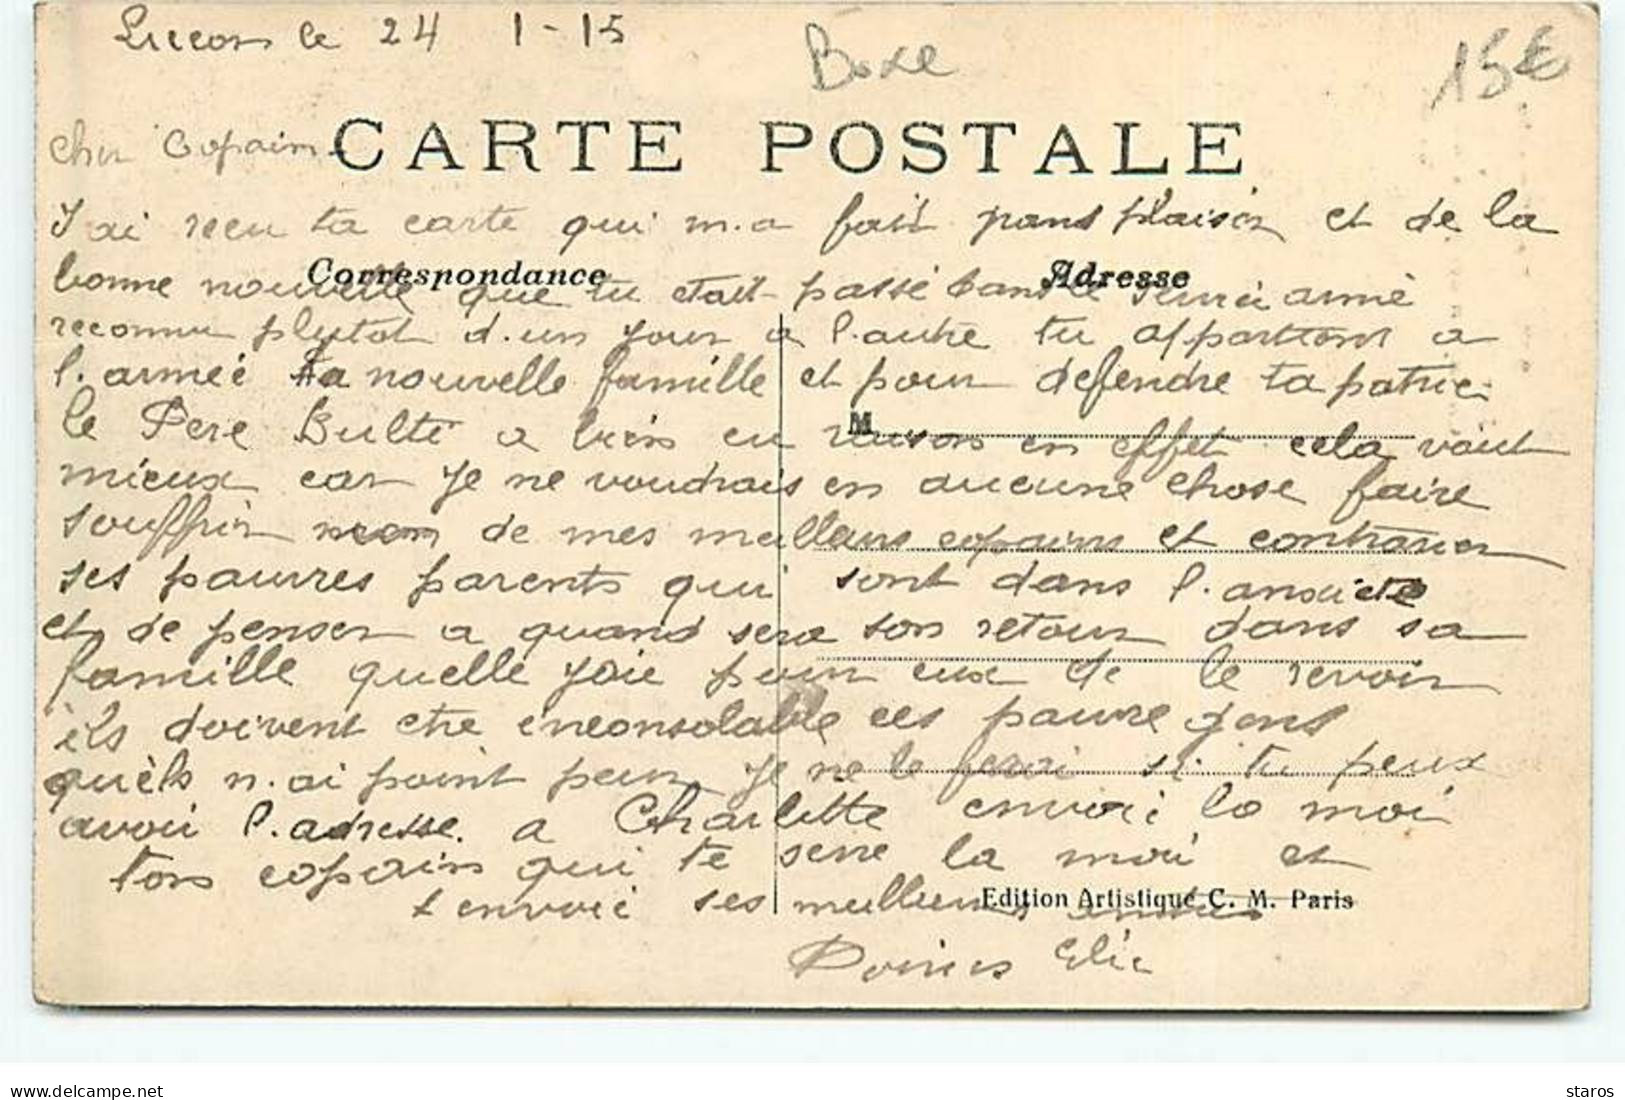 le 24 1-15
Boxe
15€
Cher Copain
CARTE POSTALE
J'ai recu ta carte qui m.a fait plaisir et de la
Correspondance Adresse
bonne nouvelle que tu etait passé dans le armé
reconnu plutot d.un jour a l.autre tu a
l.armée ta nouvelle famille et pour defendre ta patrie
M
le Pere Bulté a bien eu raison en effet cela vaut
mieux car je ne voudrais en aucune chose faire
souffrir de mes meilleurs copains et contrarier
ses pauvres parents qui sont dans l.anxiete
et de penser a quand sera son retour dans sa
famille quelle joie pour eux de le revoir
ils doivent etre inconsolable ces pauvre gens
qu'èls n.ai point peur je ne le ferai si tu peux
avoir l.adresse. a Charlotte envoi la moi
ton copain qui te serre la moi et
t envoie ses meilleurs
Edition Artistique C. M. Paris
Elie
staros
www.delcampe.net